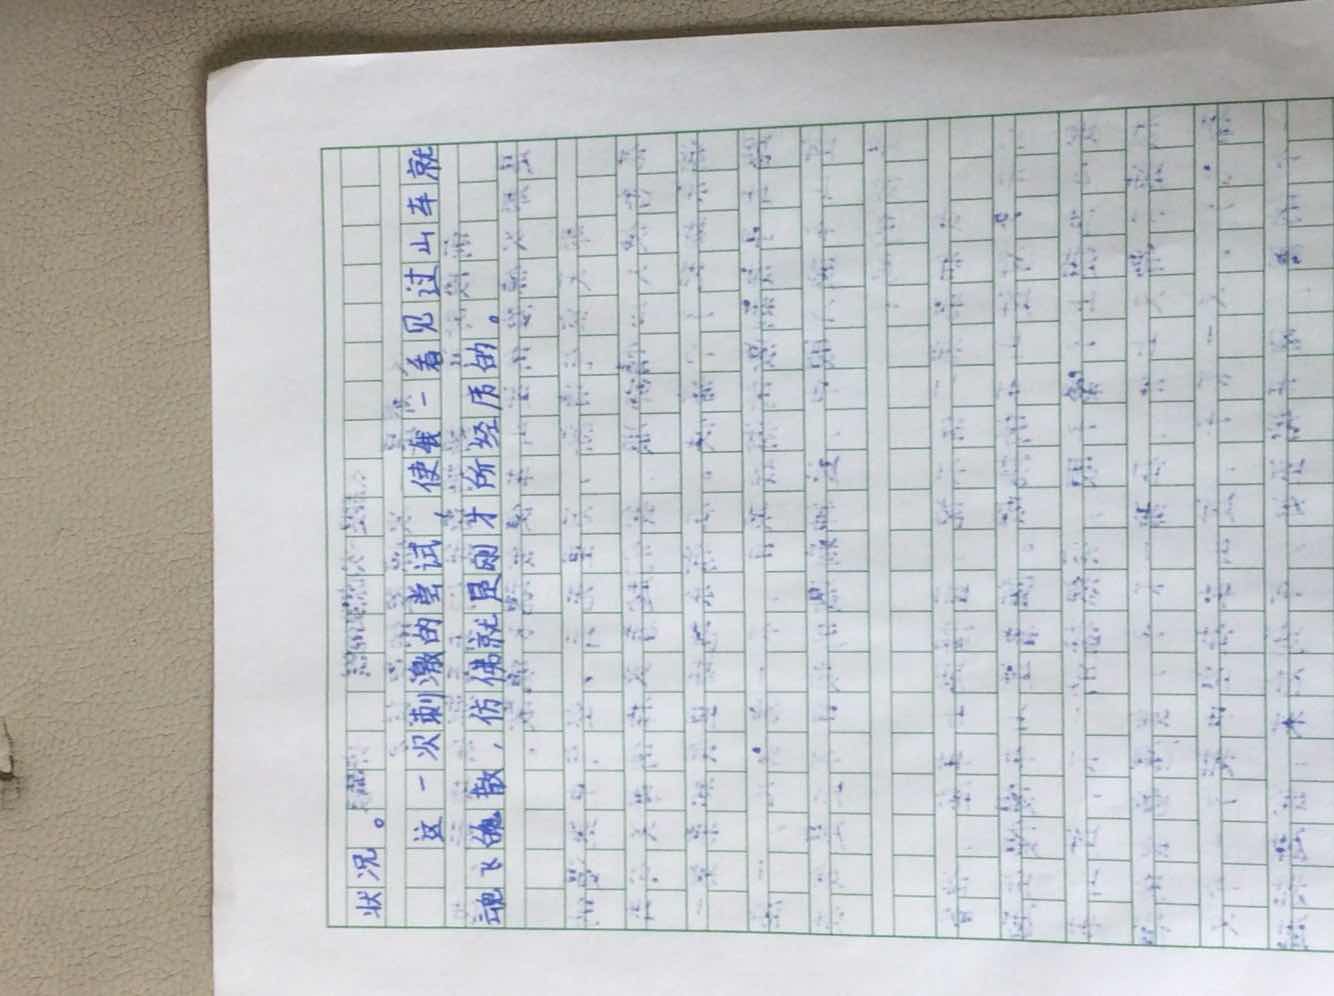 状况。
这一次刺激的尝试，使我一看见过山车就
魂飞魄散，仿佛就是刚才所经历的。